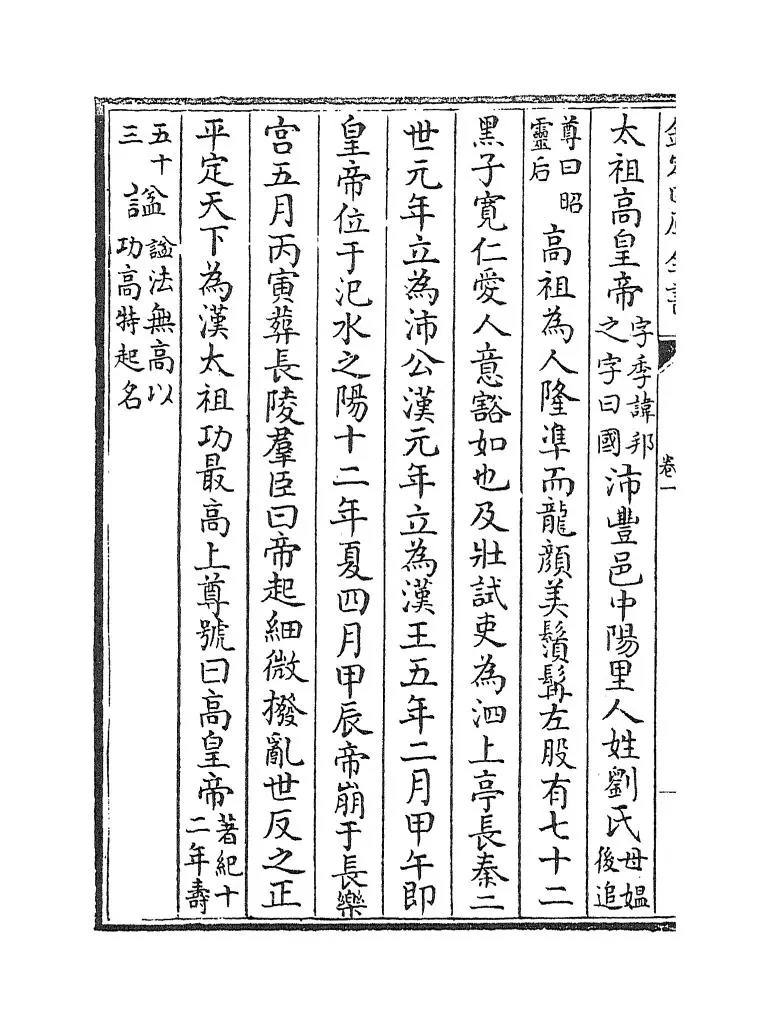 欽定四庫全書 卷一
太祖高皇帝字季諱邦之字曰國沛豐邑中陽里人姓劉氏母媼後追
尊曰昭靈后高祖為人隆準而龍顏美鬚髯左股有七十二
黑子寬仁愛人意豁如也及壯試吏為泗上亭長秦二
世元年立為沛公漢元年立為漢王五年二月甲午即
皇帝位于汜水之陽十二年夏四月甲辰帝崩于長樂
宮五月丙寅葬長陵羣臣曰帝起細微撥亂世反之正
平定天下為漢太祖功最高上尊號曰高皇帝著紀十二年壽
五十三諡諡法無高以功高特起名